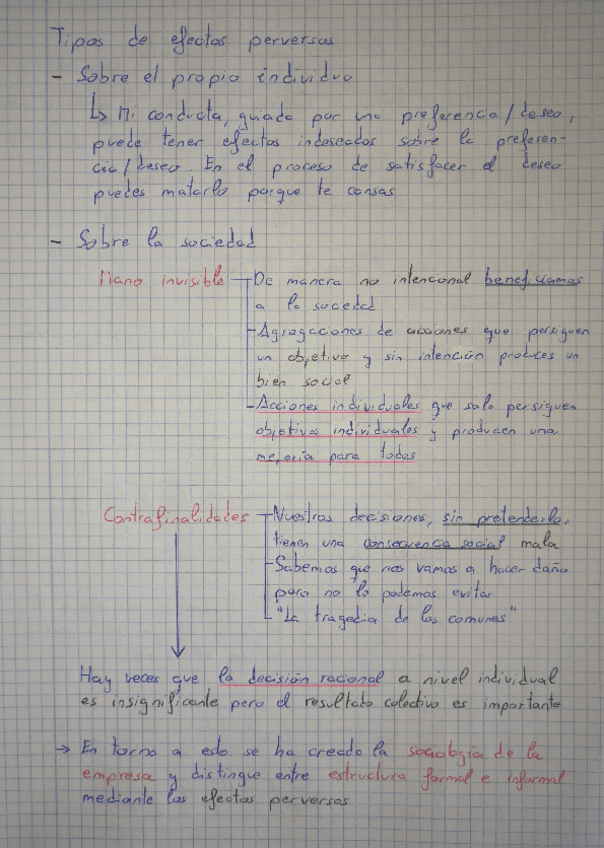 Tipos de efectos perversos
- Sobre el propio individuo
↳ Mi conducta, guiada por una preferencia/deseo,
puede tener efectos indeseados sobre la preferen-
cia/deseo. En el proceso de satisfacer el deseo
puedes matarlo porque te cansas
- Sobre la sociedad
Mano invisible - De manera no intencional beneficiamos
a la sociedad
- Agregaciones de acciones que persiguen
un objetivo y sin intención produces un
bien social
- Acciones individuales que solo persiguen
objetivos individuales y producen una
mejoría para todos
Contrafinalidades - Nuestras decisiones, sin pretenderlo,
tienen una consecuencia social mala
- Sabemos que nos vamos a hacer daño
pero no lo podemos evitar
- "La tragedia de los comunes"
Hay veces que la decisión racional a nivel individual
es insignificante pero el resultado colectivo es importante
→ En torno a esto se ha creado la sociología de la
empresa y distingue entre estructura formal e informal
mediante los efectos perversos